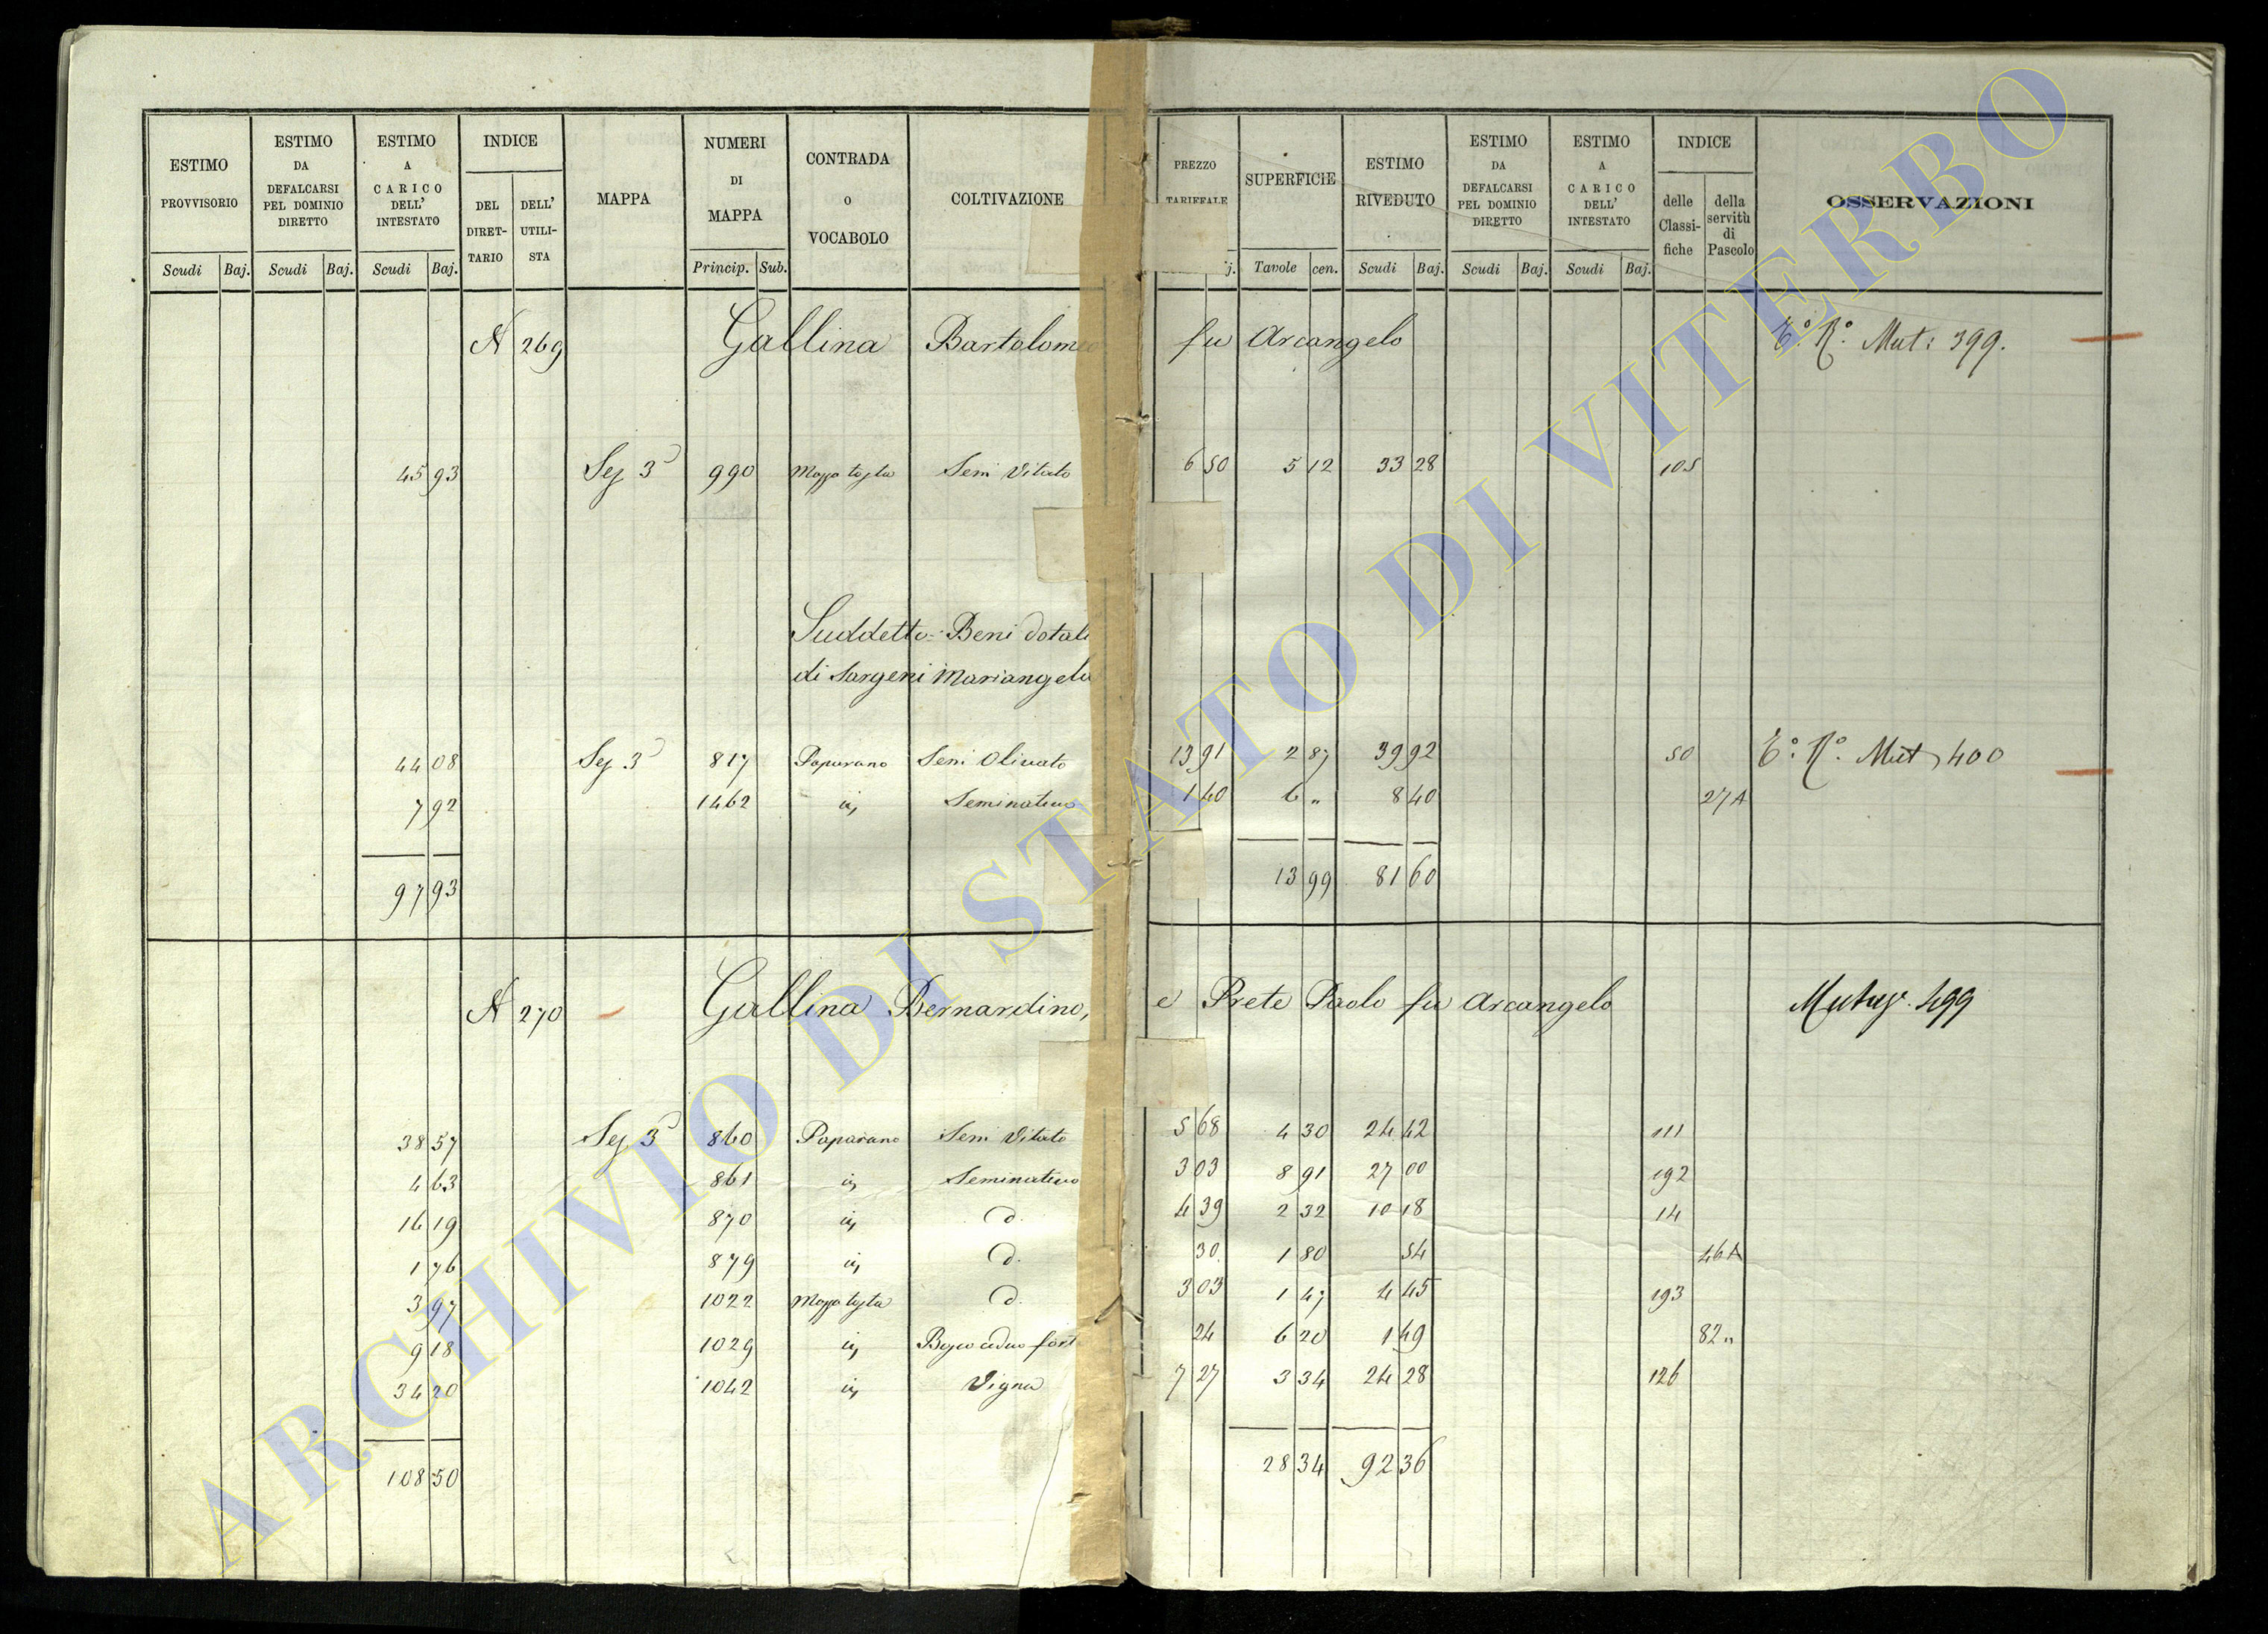 ESTIMO PROVVISORIO Scudi Baj.
ESTIMO DA DEFALCARSI PEL DOMINIO DIRETTO Scudi Baj.
ESTIMO A CARICO DELL' INTESTATO Scudi Baj.
INDICE DEL DIRET-TARIO DELL' UTILI-STA
MAPPA
NUMERI DI MAPPA Princip. Sub.
CONTRADA O VOCABOLO
COLTIVAZIONE
PREZZO TARIFFALE j.
SUPERFICIE Tavole cen.
ESTIMO RIVEDUTO Scudi Baj.
ESTIMO DA DEFALCARSI PEL DOMINIO DIRETTO Scudi Baj.
ESTIMO A CARICO DELL' INTESTATO Scudi Baj.
INDICE delle Classi-fiche della servitù di Pascolo
OSSERVAZIONI
N 269 Gallina Bartolomeo fu Arcangelo Mut: 399.
45 93 Sez 3ª 990 Semi Vitato 6 50 5 12 33 28 105
Suddetto = Beni dotali
di Sargeni Mariangela
44 08 Sez 3ª 817 Paparano Semi Olivato 13 91 2 87 39 92 50 Mut 400
7 92 1462 Seminativo 1 40 6 „ 8 40 27 A
97 93 13 99 81 60
N 270 Gallina Bernardino, e Prete Paolo fu Arcangelo 499
38 57 Sez 3ª 860 Paparano Semi Vitato 5 68 4 30 24 42 111
4 63 861 Seminativo 3 03 8 91 27 00 192
16 19 870 d. 4 39 2 32 10 18 14
1 76 879 d. 30 1 80 54 46 A
3 97 1022 d. 3 03 1 47 4 45 193
9 18 1029 24 6 20 1 49 82 „
34 20 1042 Vigna 7 27 3 34 24 28 126
108 50 28 34 92 36
ARCHIVIO DI STATO DI VITERBO